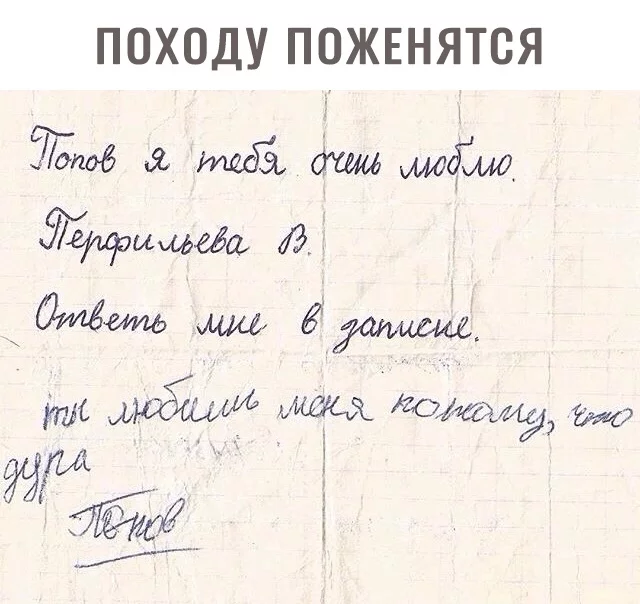 ПОХОДУ ПОЖЕНЯТСЯ
Попов я тебя очень люблю.
Перфильева В.
Ответь мне в записке.
ты любишь меня потому, что
дура
Попов